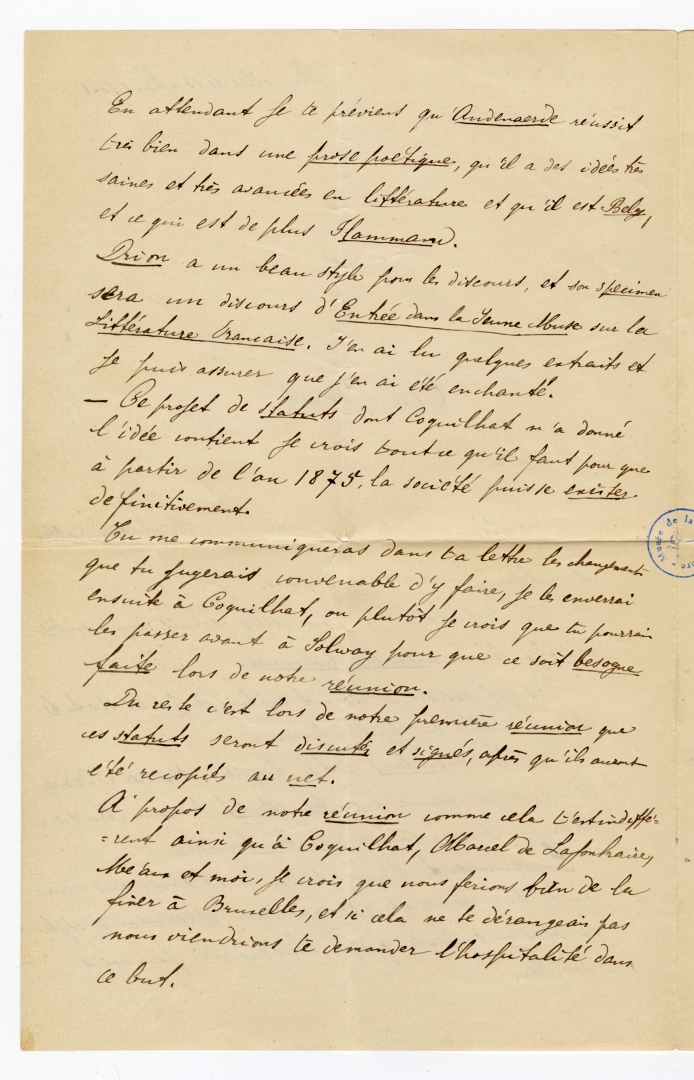 En attendant je te préviens qu'Audenaerde réussit
très bien dans une prose poétique, qu'il a des idées très
saines et très avancées en littérature et qu'il est Belge,
et ce qui est de plus Flammand.
Drion a un beau style pour les discours, et son specimen
sera un discours d'Entrée dans la Jeune Muse sur la
Littérature Francaise. J'en ai lu quelques extraits et
je puis assurer que j'en ai été enchanté.
— Ce projet de statuts dont Coquilhat m'a donné
l'idée contient je crois tout ce qu'il faut pour que
à partir de l'an 1875, la société puisse exister
definitivement.
Tu me communiqueras dans ta lettre les changements
que tu jugerais convenable d'y faire, je les enverrai
ensuite à Coquilhat, ou plutôt je crois que tu pourrais
les passer avant à Solway pour que ce soit besogne
faite lors de notre réunion.
Du reste c'est lors de notre première réunion que
ces statuts seront discutés et signés, après qu'ils auront
été recopiés au net.
A propos de notre réunion comme cela t'est indiffé-
=rent ainsi qu'à Coquilhat, de Lafontaine,
Méaux et moi, je crois que nous ferions bien de la
fixer à Bruxelles, et si cela ne te dérangeais pas
nous viendrions te demander l'hospitalité dans
ce but.
Musée de la